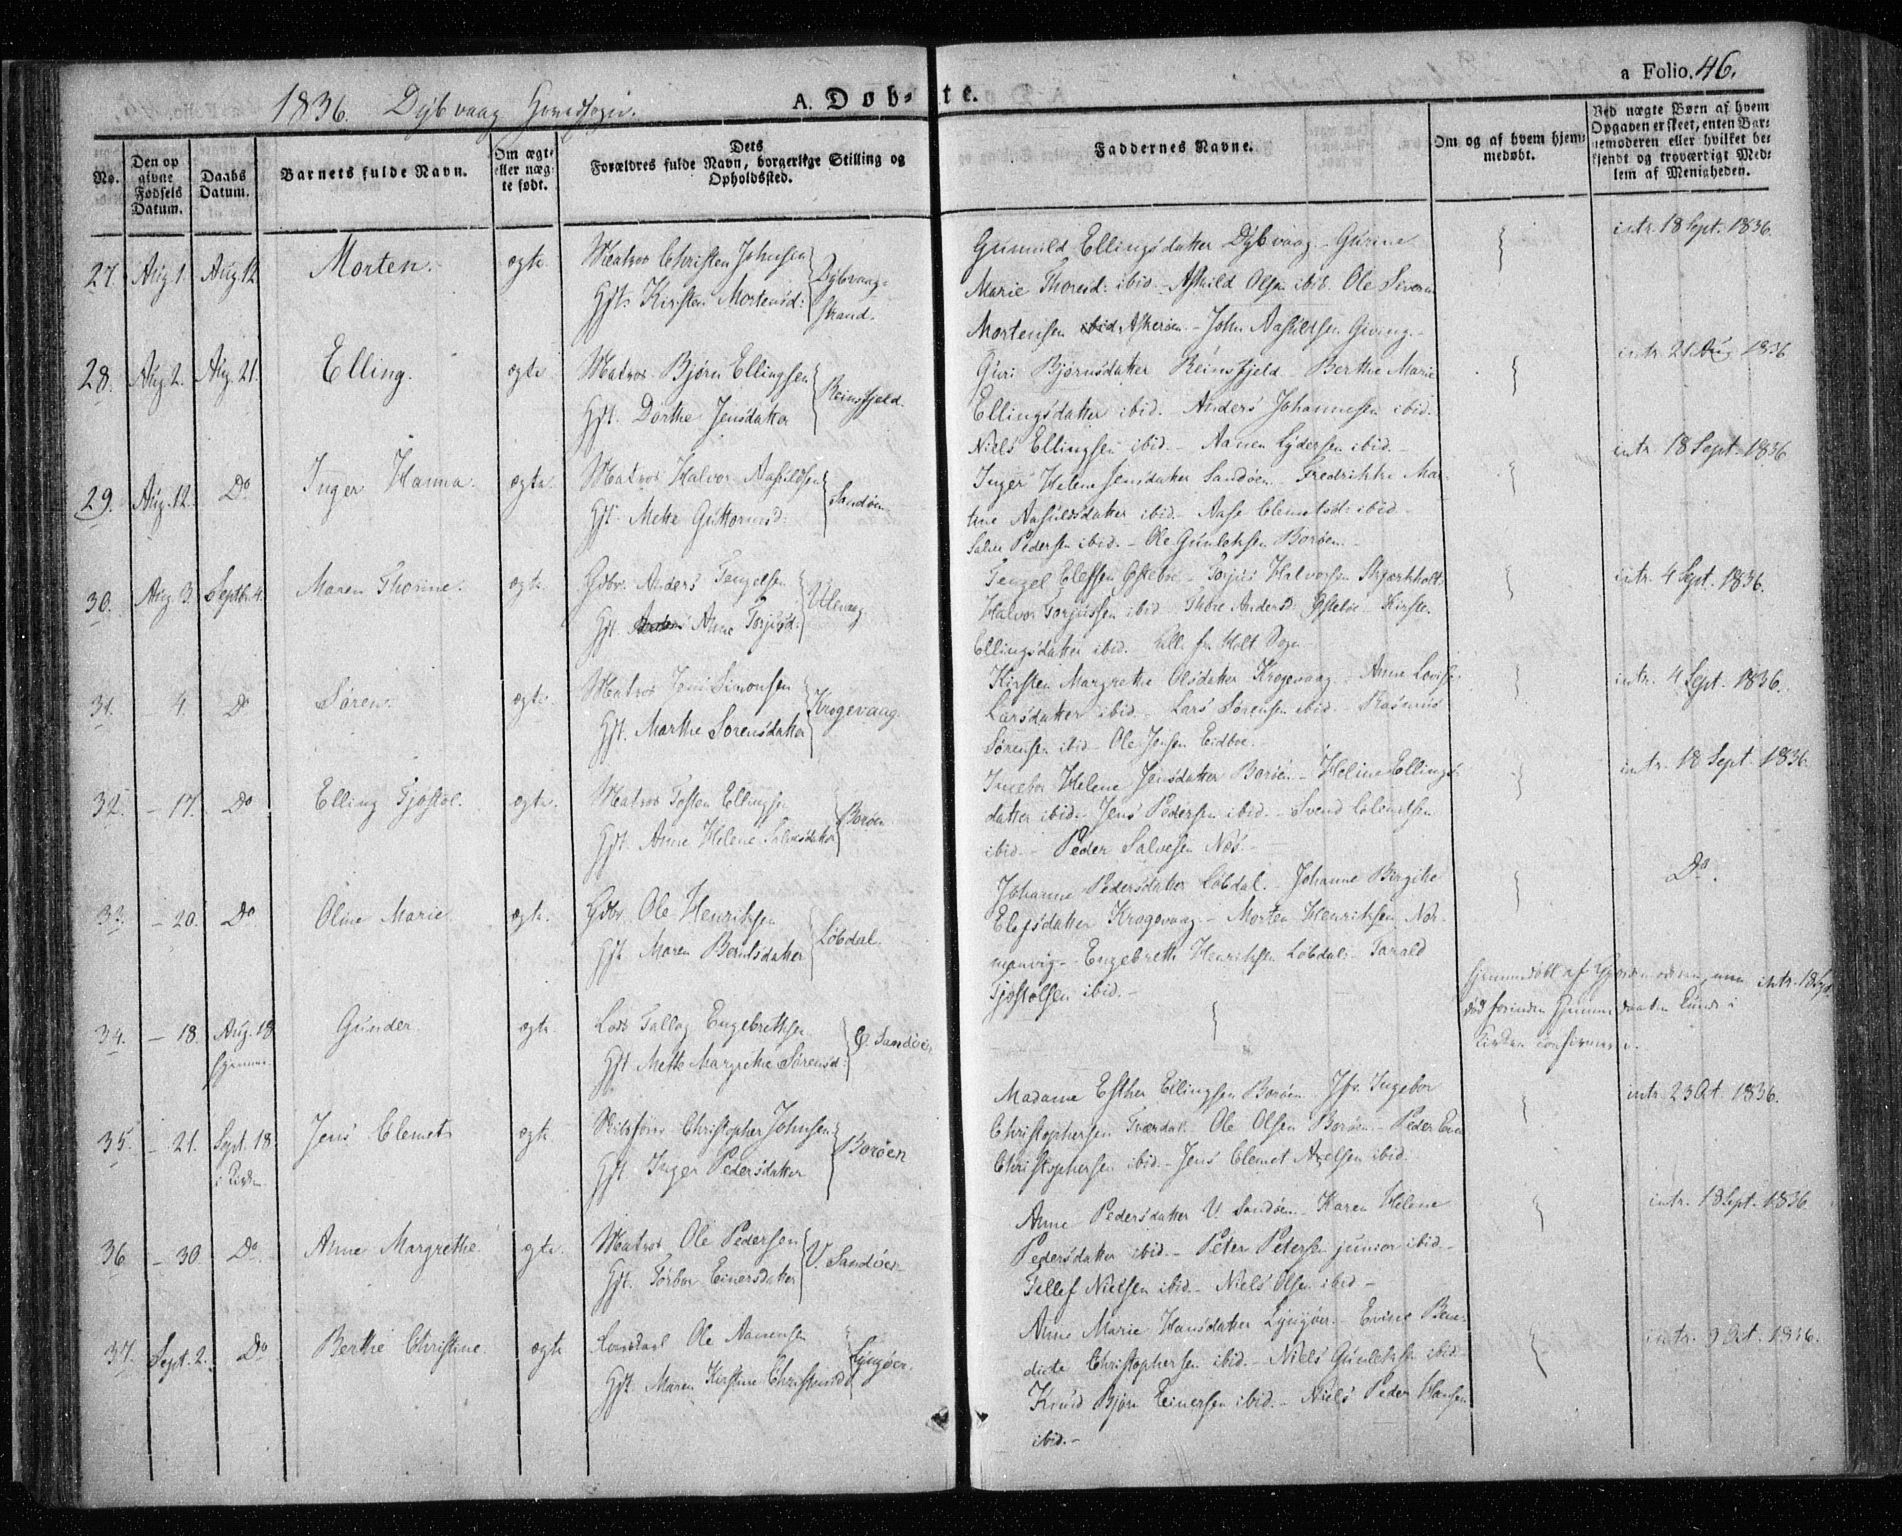 a Folio. 46.
1836. Dybvaag Hovedsogn.
A. Døb-te.
No.
Den op givne Fødsels Datum.
Daabs Datum.
Barnets fulde Navn.
Om ægte eller uægte født.
Dets Forældres fulde Navn, borgerlige Stilling og Opholdssted.
Faddernes Navne.
Om og af hvem hjemmedøbt.
Ved uægte Børn af hvem Opgaven er skeet, enten Barnemoderen eller hvilket bekjendt og troværdigt Medlem af Menigheden.
27. Aug 1. Aug 12 Morten. ægte Matros Christen Johnsen
Gift Kirsten Mortensd: Dybvaag-strand.
Gunnild Ellingsdatter Dybvaag - Gurine
Marie Thoresd: ibid - Asuild Olsen ibid. Ole Severin
Mortensen ibid Askerøen - John Aasuldsen Gioing -
intr. 18 Sept. 1836
28. Aug. 2. Aug. 21. Elling. ægte Matros Bjørn Ellingsen
Gift. Dorthe Jensdatter Reinsfjeld.
Guri Bjørnsdatter Reinsfjeld - Berthe Marie
Ellingsdatter ibid. Anders Johannesen ibid.
Niels Ellingsen ibid. - Aanen Lydersen ibid. -
intr. 21 Aug 1836
29. Aug. 12. Do Inger Hanna. ægte. Matros Halvor Aasuldsen
Gift. Mette Guttormsd: Sandøen
Inger Helene Jensdatter Sandøen. Fredrikke Mar-
tine Aasuldsdatter ibid - Aase Clemetsd: ibid -
Salve Pedersen ibid. - Ole Gunleksen Borøen. -
intr. 18 Sept. 1836
30. Aug. 3. Septbr 4. Maren Thorine. ægte. Gdbr. Anders Tengelsen
Gift. Anne Torjusd: Ulevaag
Tengel Elefsen Østebøe - Torjus Halvorsen Skjærkholt
Halvor Torjussen ibid Thore Andersd Østebøe - Kirsten
Ellingsdatter ibid. - Holt Sogn
intr. 4 Sept. 1836.
31. - 4. Do Søren. ægte Matros Jens Simonsen
Gift. Marthe Sørensdatter Krogevaag.
Kirsten Margrethe Olsdatter Krogevaag - Anne Lovise
Larsdatter ibid - Lars Sørensen ibid - Rasmus
Sørensen ibid - Ole Jensen Eidboe. -
intr. 4 Sept. 1836.
32. - 17. Do Elling Tjøstol. ægte. Matros Tosten Ellingsen
Gift. Anne Helene Salvesdatter Borøen
Ingebor Helene Jensdatter Borøen - Heline Ellings-
datter ibid - Jens Pedersen ibid. - Svend Clemetsen
ibid. - Peder Salvesen Næs. -
intr. 18 Sept. 1836
33. - 20. Do Oline Marie ægte. Gdbr Ole Henriksen
Gift Maren Berntsdatter Løbdal.
Johanne Pedersdatter Løbdal. - Johanne Bergithe
Elefsdatter Krogevaag. - Morten Henriksen Nor-
manvig - Engebreth Henriksen Løbdal - Tarald
Tjøstolsen ibid. -
Do.
34. - 18. Aug. 18 hjemme Gunder ægte Lods Tallag Engebrethsen
Gift Mette Margrethe Sørensd: Ø. Sandøen
intr. 18 Sept
død forinden
Kirken
35. - 21. Sept. 18 i Kirken Jens Clemet ægte Skibsfører Christopher Johnsen
Gift. Inger Pedersdatter Borøen
Madame Esther Ellingsen Borøen. Jfr. Ingebor
Christophersen Tværdal. Ole Olsen Borøen. - Peder
Christophersen ibid. - Jens Clemet Axelsen ibid.
intr. 23 Oct. 1836.
36 - 30. Do Anne Margrethe ægte. Matros Ole Pedersen
Gift. Torbor Einersdatter V. Sandøen
Anne Pedersdatter V. Sandøen - Karen Helene
Pedersdatter ibid. - Peter Petersen junior ibid -
Tellef Nielsen ibid. - Niels Olsen ibid -
intr. 18 Sept. 1836.
37. Sept. 2. Do Berthe Christine ægte Ole Aanensen
Gift. Maren Kirstine Christensd: Lyngøer.
Anne Marie Hansdatter Lyngøer. - Evine Bene-
dicte Christophersen ibid. - Niels Gunleksen ibid -
Knud Bjørn Einersen ibid. - Niels Peder Hansen
ibid. -
intr. 9 Oct. 1836.